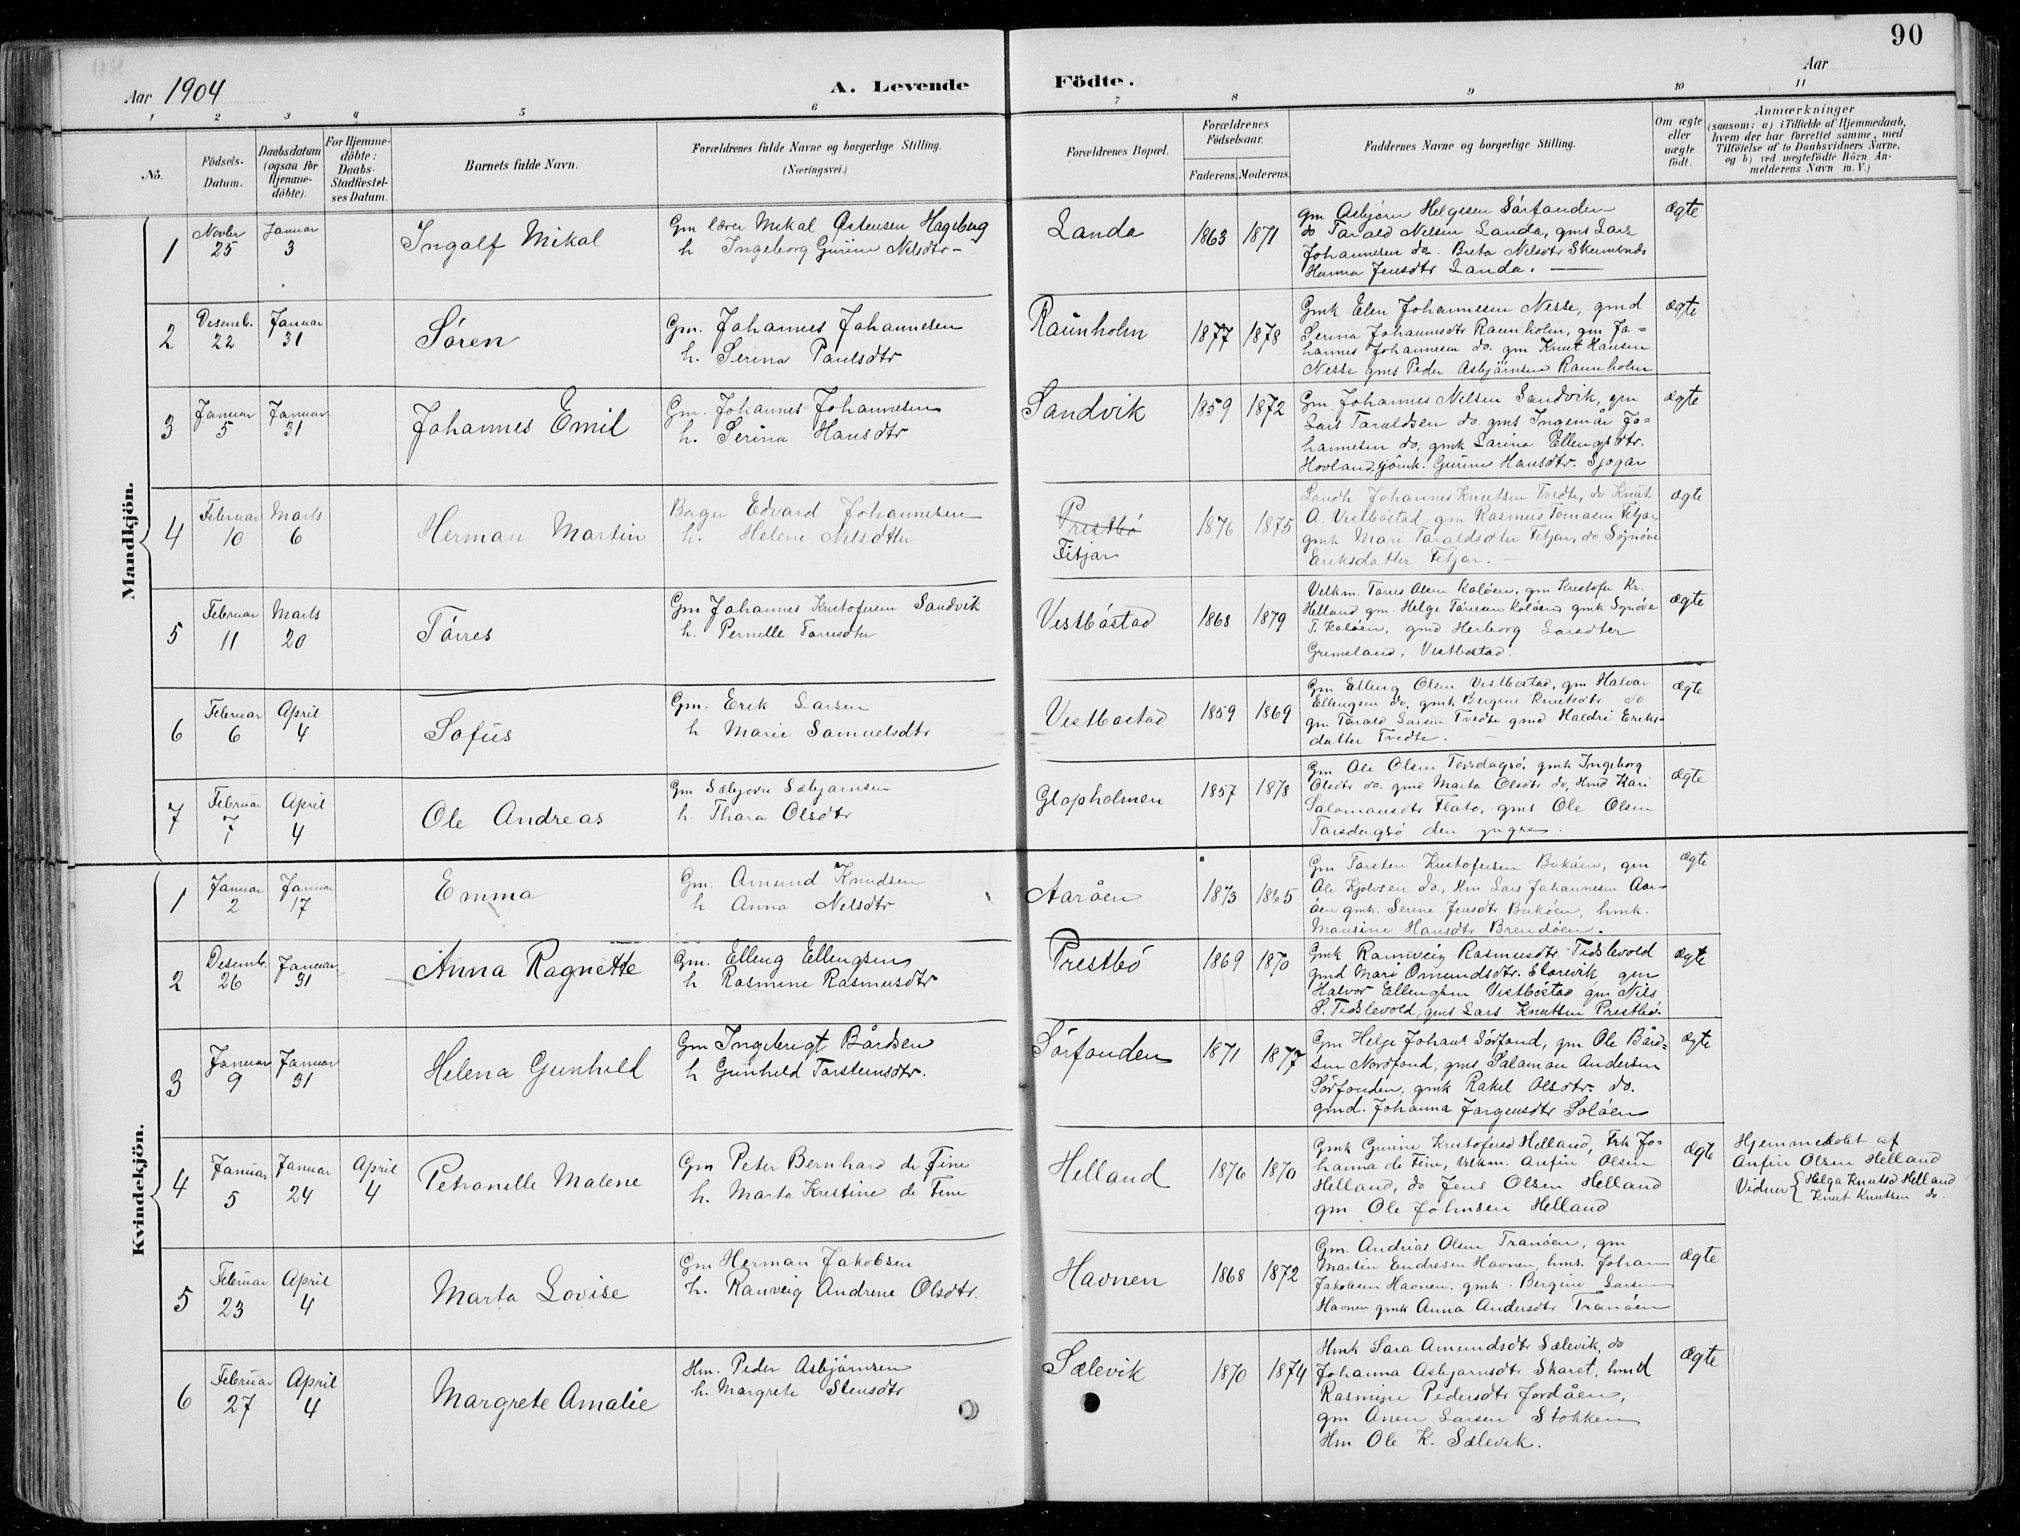 90
Aar 1904
A. Levende
Födte.
Aar
1 2 3 4 5 6 7 8 9 10 11
No.
Födsels-
Datum.
Daabsdatum
(ogsaa for
Hjemme-
döbte).
For Hjemme-
döbte:
Daabs-
Stadfæstel-
ses Datum.
Barnets fulde Navn.
Forældrenes fulde Navne og borgerlige Stilling.
(Næringsvei.)
Forældrenes Bopæl.
Forældrenes
Födselsaar.
Faderens. Moderens.
Faddernes Navne og borgerlige Stilling.
Om ægte
eller
uægte
födt.
Anmærkninger
(saasom: a) i Tilfælde af Hjemmedaab,
hvem der har forrettet samme, med
Tilföielse af to Daabsvidners Navne,
og b) ved uægtefödte Börn An-
melderens Navn m. V.)
Mandkjön.
1 Novbr 25 Januar 3 Ingolf Mikal
Gm lærer Mikal Østensen Hageberg
h Ingeborg Gurine Nilsdtr
Landa 1863 1871
gm Asbjørn Helgesen Sørfonden
do Tarald Nelsen Landa, gms Lars
Johannesen do. Breta Nelsdtr
Hanna Jensdtr Landa.
Ægte
2 Desemb. 22 Januar 31 Søren
Gm. Johannes Johannesen
h. Serina Paulsdtr
Raunholm 1877 1878
Gmk Elen Johannesen Nesse, gmd
Serina Johannesdtr Raunholm, gm Jo-
hannes Johannesen do. gm Knut Hansen
Nesse gms Peder Asbjørnsen Raunholm
Ægte
3 Januar 5 Januar 31 Johannes Emil
Gm. Johannes Johannesen
h. Serina Hansdtr
Sandvik 1859 1872
Gm. Johannes Nelsen Sandvik, gm
Lars Taraldsen do. gms Ingemar Jo-
hannesen do, gmk Larina Ellengsdtr.
Hovland, gmk. Gurine Hansdtr.
Ægte
4 Februar 10 Marts 6 Herman Martin
Bager Edvard Johannesen
h. Helene Nelsdtter
Prestbø
Fitjar
1876 1875
Landh Johannes Knutsen Tvedte, do Knut
A. Vestbøstad, gm Rasmus Tomasen Fitjar
gmk Mari Taraldsdtr Fitjar, do Sønøve
Eriksdatter Fitjar.
Ægte
5 Februar 11 Marts 20 Tørres
Gm Johannes Kristofersen Sandvik
h. Pernille Tørresdtr
Vestbøstad 1868 1879
Velkm. Tørres Olsen Koløen, gm Kristofer Kr.
Helland gm. Helge Tørresen Koløen, gmk Sønøve
T. Koløen, gmd Herborg Larsdtr
Grimsland, Vestbøstad.
Ægte
6 Februar 6 April 4 Sofus
Gm. Erik Larsen
h Marie Samuelsdtr
Vestbøstad 1859 1869
Gm Elleng Olsen Vestbøstad, gm Halvor
Ellengsen do, gmk Bergine Knutsdtr do
gm Tarald Larsen Tvedte gmd Haldri Eriks-
datter Tvedte.
Ægte
7 Februar 7 April 4 Ole Andreas
Gm Sæbjørn Sæbjørnsen
h. Thora Olsdtr
Glopholmen 1857 1878
Gm Ole Olsen Torsdagsø, gmk Ingeborg
Olsdtr do. gmd Marta Olsdtr do, hmd Kari
Salamonsdtr Flatø, gms Ole Olsen
Torsdagsø den yngre.
Ægte
Kvindekjön.
1 Januar 2 Januar 17 Emma
Gm. Amund Knudsen
h Anna Nelsdtr
Aarøen 1873 1865
Gm Torsten Kristofersen Bukøen, gm
Ole Kjølvsen do, Hm Lars Johannesen Aar-
øen gmk. Serine Jensdtr Bukøen, hmk.
Mansine Hansdtr Brendøen.
Ægte
2 Desemb. 26 Januar 31 Anna Ragnette
Gm. Elleng Ellengsen
h Rasmine Rasmusdtr
Prestbø 1869 1870
Gmk Rannveig Rasmusdtr Tidslevold
gmd Mari Omundsdtr. Storevik gm
Halvor Ellengsen Vestbøstad gm Nils
S. Tidslevold, gms Lars Knutsen Prestbø.
Ægte
3 Januar 9 Januar 31 Helena Gunhild
Gm Ingebrigt Bårdsen
h Gunhild Torsteinsdtr.
Sørfonden 1871 1877
Gm Helge Johans Sørfond, gm Ole Bård-
sen Nordfond, gms Salamon Andersen
Sørfonden, gmk Rakel Olsdtr. do.
gmd. Johanna Jørgensdtr Soløen
Ægte
4 Januar 5 Januar 24 April 4 Petranelle Malene
Gm Peter Bernhard de Fine
h. Marta Kristine de Fine
Helland 1876 1870
Gmk Gurine Kristofersd Helland, Frk Jo-
hanna de Fine, Velkm. Anfin Olsen
Helland, do Jens Olsen Helland
gm Ole Johnsen Helland
Ægte
Hjemmedøbt af
Anfin Olsen Helland
Vidner { Helga Knutsd Helland
Knut Knutsen do.
5 Februar 23 April 4 Marta Lovise
Gm Herman Jakobsen
h. Ranveig Andrine Olsdtr.
Havnen 1868 1872
Gm. Andrias Olsen Tranøen, gm
Martin Endresen Havnen, hms. Johan
Jakobsen Havnen. gmk. Bergine Larsen
Havnen gmk Anna Andersdtr Tranøen
Ægte
6 Februar 27 April 4 Margrete Amalie
Hm. Peder Asbjørnsen
h. Margrete Stensdtr
Sælevik 1870 1874
Hmk Sara Amundsdtr Sælevik, do
Johanna Asbjørnsdtr Skaret, hmd
Rasmine Pedersdtr Jordåen,
gm Anen Larsen Stokken
Hm Ole K. Sælevik.
Ægte